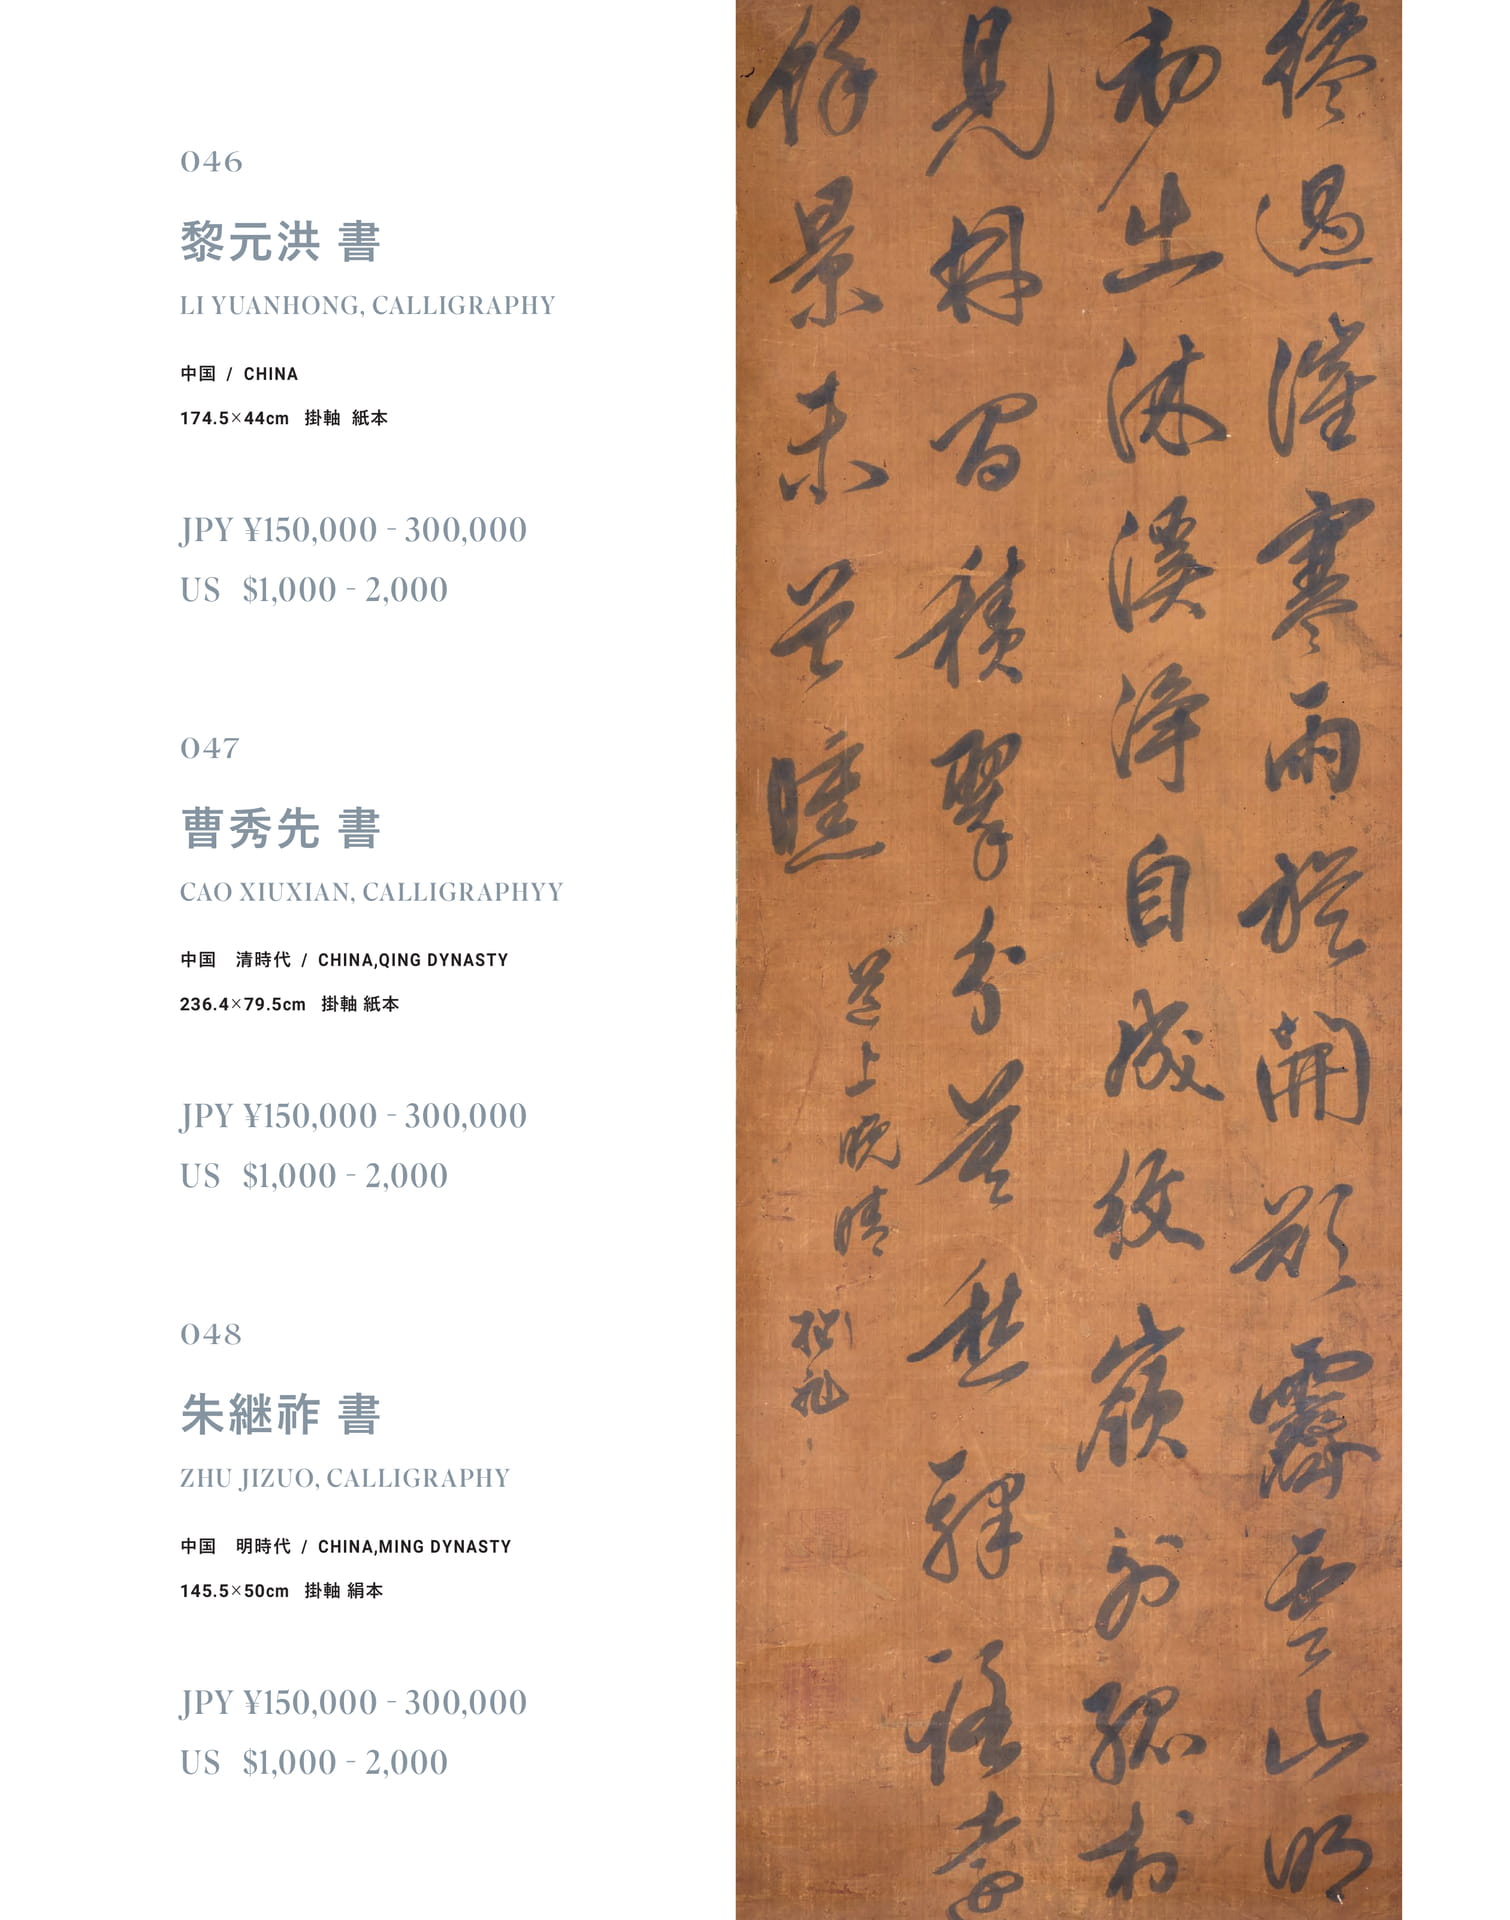 046
黎元洪 書
LI YUANHONG, CALLIGRAPHY
中国 / CHINA
174.5×44cm 掛軸 紙本
JPY ¥150,000 - 300,000
US $1,000 - 2,000
047
曹秀先 書
CAO XIUXIAN, CALLIGRAPHYY
中国 清時代 / CHINA,QING DYNASTY
236.4×79.5cm 掛軸 紙本
JPY ¥150,000 - 300,000
US $1,000 - 2,000
048
朱継祚 書
ZHU JIZUO, CALLIGRAPHY
中国 明時代 / CHINA,MING DYNASTY
145.5×50cm 掛軸 絹本
JPY ¥150,000 - 300,000
US $1,000 - 2,000
過灌寒雨於開欲霽雲山明
初出沐溪淨自成紋嶺外孤村
見林間積翠分暮愁驛路
餘景未曛
道上晚晴